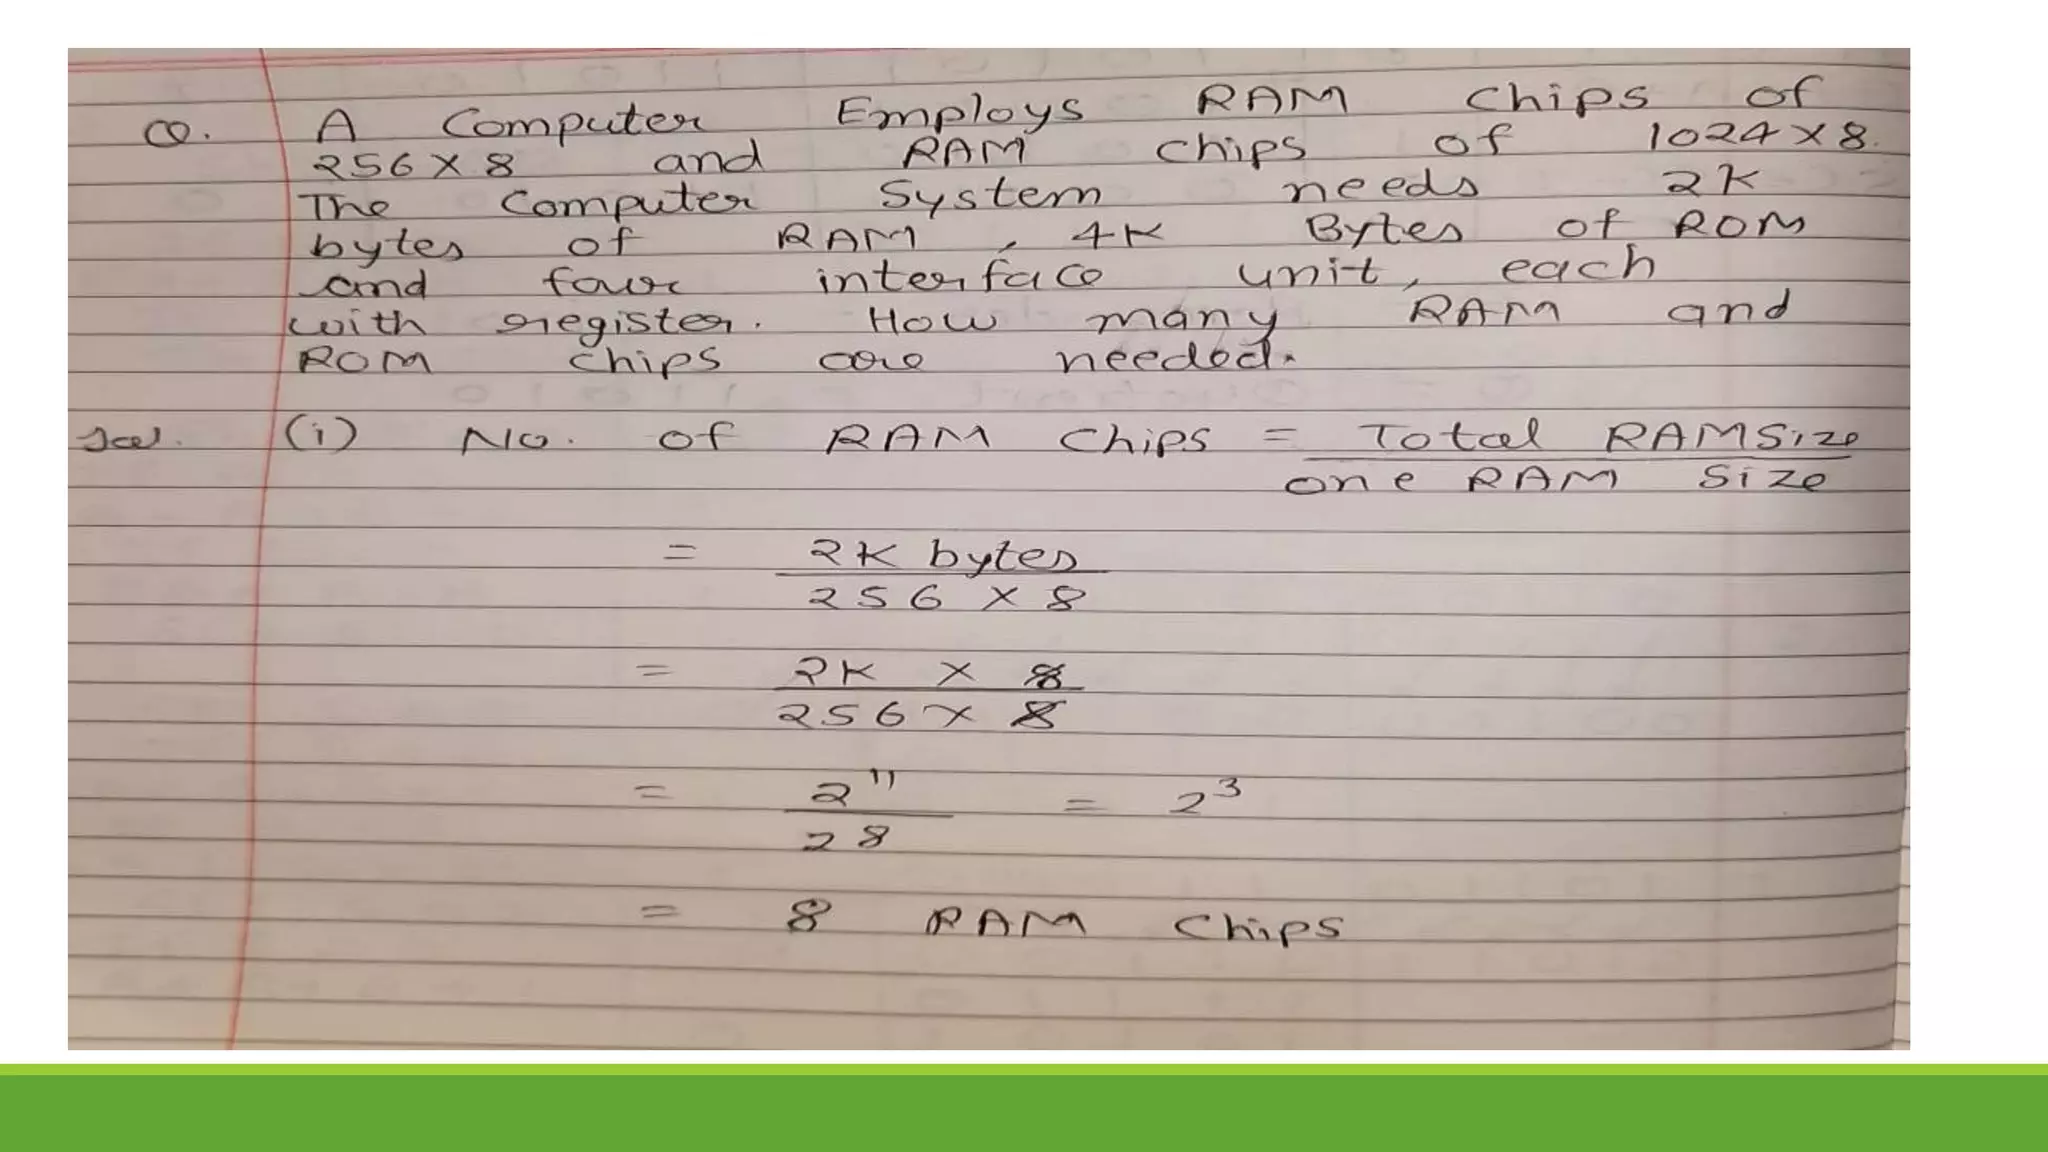 Q. A Computer Employs RAM Chips of
256 X 8 and RAM Chips of 1024 X 8.
The Computer System needs 2K
bytes of RAM, 4K Bytes of ROM
and four interface unit, each
with register. How many RAM and
ROM Chips are needed.
Sol. (i) No. of RAM Chips = Total RAM Size
one RAM Size
= 2K bytes
256 X 8
= 2K X 8
256 X 8
= 2^11 = 2^3
2^8
= 8 RAM Chips